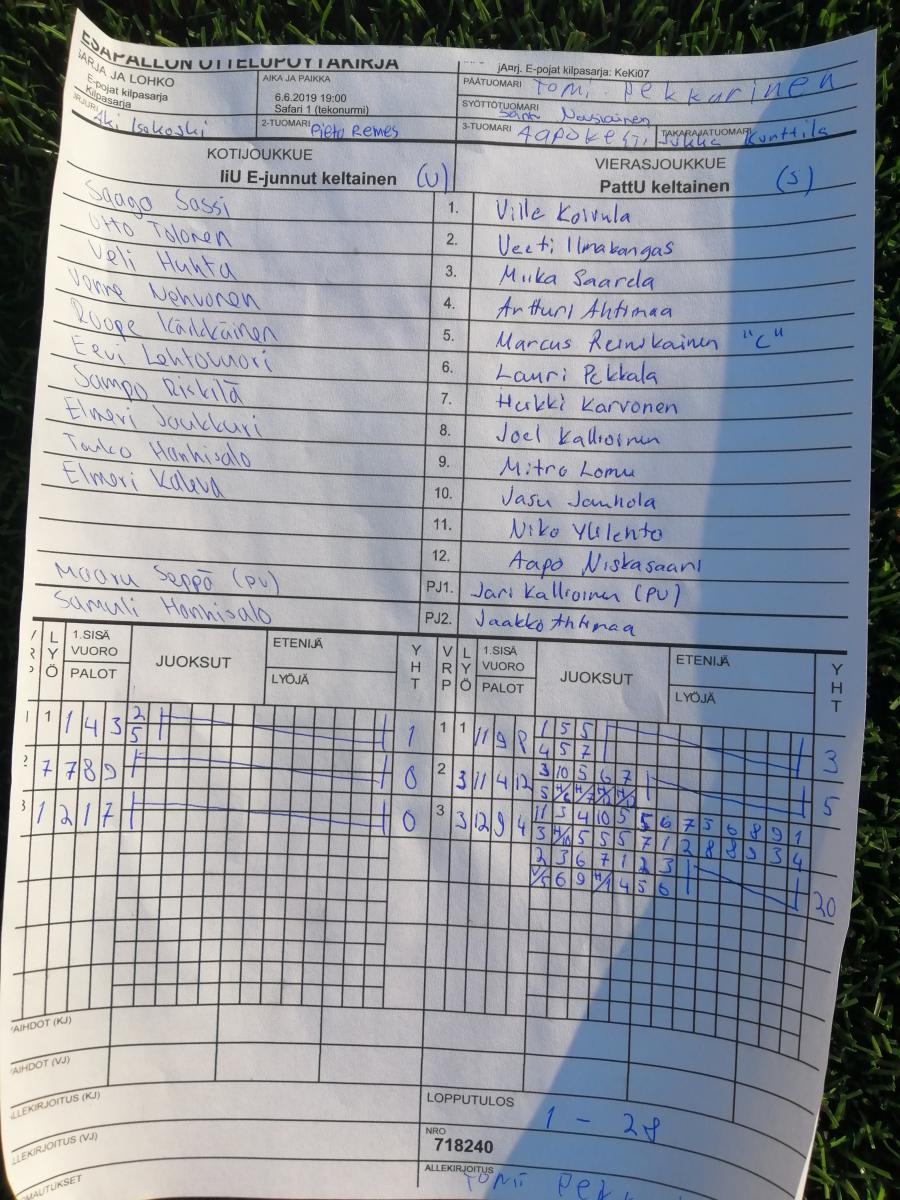 ESÄPALLON OTTELUPÖYTÄKIRJA
ARJA JA LOHKO
E-pojat kilpasarja
Kilpasarja
AIKA JA PAIKKA
6.6.2019 19:00
Safari 1 (tekonurmi)
jA¤rj. E-pojat kilpasarja: KeKi07
PÄÄTUOMARI Tomi Pekkarinen
SYÖTTÖTUOMARI
Nousiainen
Aki Isokoski
2-TUOMARI Pieto Remes
3-TUOMARI Aapo
TAKARAJATUOMARI Jukka Kunttila
KOTIJOUKKUE
IiU E-junnut keltainen (U)
VIERASJOUKKUE
PattU keltainen (S)
Saago Sassi 1. Ville Koivula
Otto Tolonen 2. Veeti Ilmakangas
Veli Huhta 3. Miika Saarela
Nehvonen 4. Artturi Ahtimaa
Roope Kärkkäinen 5. Marcus Reinikainen "C"
Eevi Lehtovuori 6. Lauri Pekkala
Sampo Riskilä 7. Heikki Karvonen
Elmeri Joukkuri 8. Joel Kallioinen
Touko Hanhisalo 9. Mitro Lomu
Elmeri Kaleva 10. Jasu Jauhola
11. Niko Ylilehto
12. Aapo Niskasaari
Maaru Seppä (PU) PJ1. Jari Kallioinen (PU)
Samuli Hanhisalo PJ2. Jaakko Ahtimaa
LYÖ 1.SISÄ VUORO PALOT JUOKSUT ETENIJÄ LYÖJÄ YHT VRP LYÖ 1.SISÄ VUORO PALOT JUOKSUT ETENIJÄ LYÖJÄ YHT
1 1 4 3 2 1 1 1 11 9 8 1 5 5 3
5 4 5 7
7 7 8 9 0 2 3 11 4 12 3 10 5 6 7 5
1 2 1 7 0 3 3 12 9 4 11 3 4 10 5 5 6 7 5 6 8 9 1
5 5 5 7 1 2 8 8 9 3 4
2 3 6 7 1 2 3 20
6 9 4 5 6
AIHDOT (KJ)
AIHDOT (VJ)
LLEKIRJOITUS (KJ)
LOPPUTULOS
1 - 28
LLEKIRJOITUS (VJ)
NRO
718240
ALLEKIRJOITUS
Tomi
MAUTUKSET